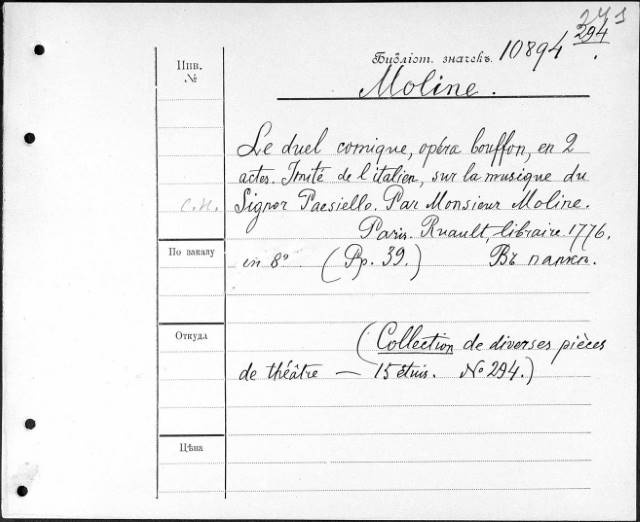 241
294
Инв.
№
Библіот. значекъ. 10894
Moline.
Le duel comique, opéra bouffon, en 2
actes. Imité de l'italien, sur la musique du
С.Н. Signor Paesiello. Par Monsieur Moline.
Paris. Ruault, libraire. 1776.
По заказу
in 8° (Pp. 39.) Въ папкѣ.
Откуда
(Collection de diverses pièces
de théâtre — 15 étuis. № 294.)
Цѣна